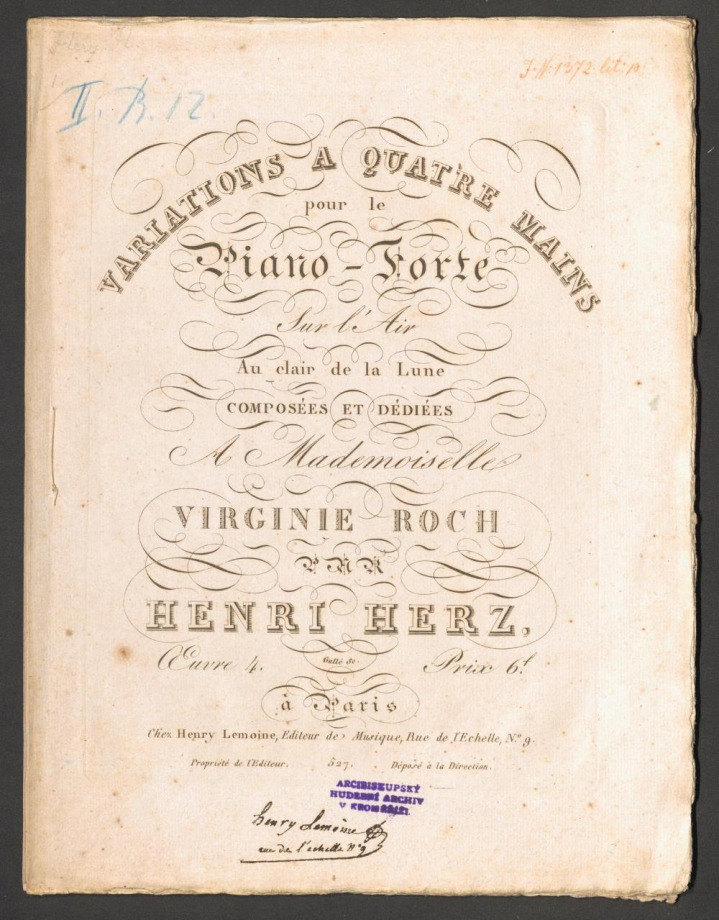 II. B. 12.
J. N: 1272. lit: B
VARIATIONS A QUATRE MAINS
pour le
Piano-Forte
Sur l'Air
Au clair de la Lune
COMPOSÉES ET DÉDIÉES
A Mademoiselle
VIRGINIE ROCH
PAR
HENRI HERZ,
Œuvre 4. Prix 6f
à Paris
Chez Henry Lemoine, Editeur de Musique, Rue de l'Echelle, No. 9.
Propriété de l'Editeur. 527. Déposé à la Direction.
ARCIBISKUPSKÝ
HUDEBNÍ ARCHIV
V KROMĚŘÍŽI.
henry Lemoine
rue de l'echelle No 9